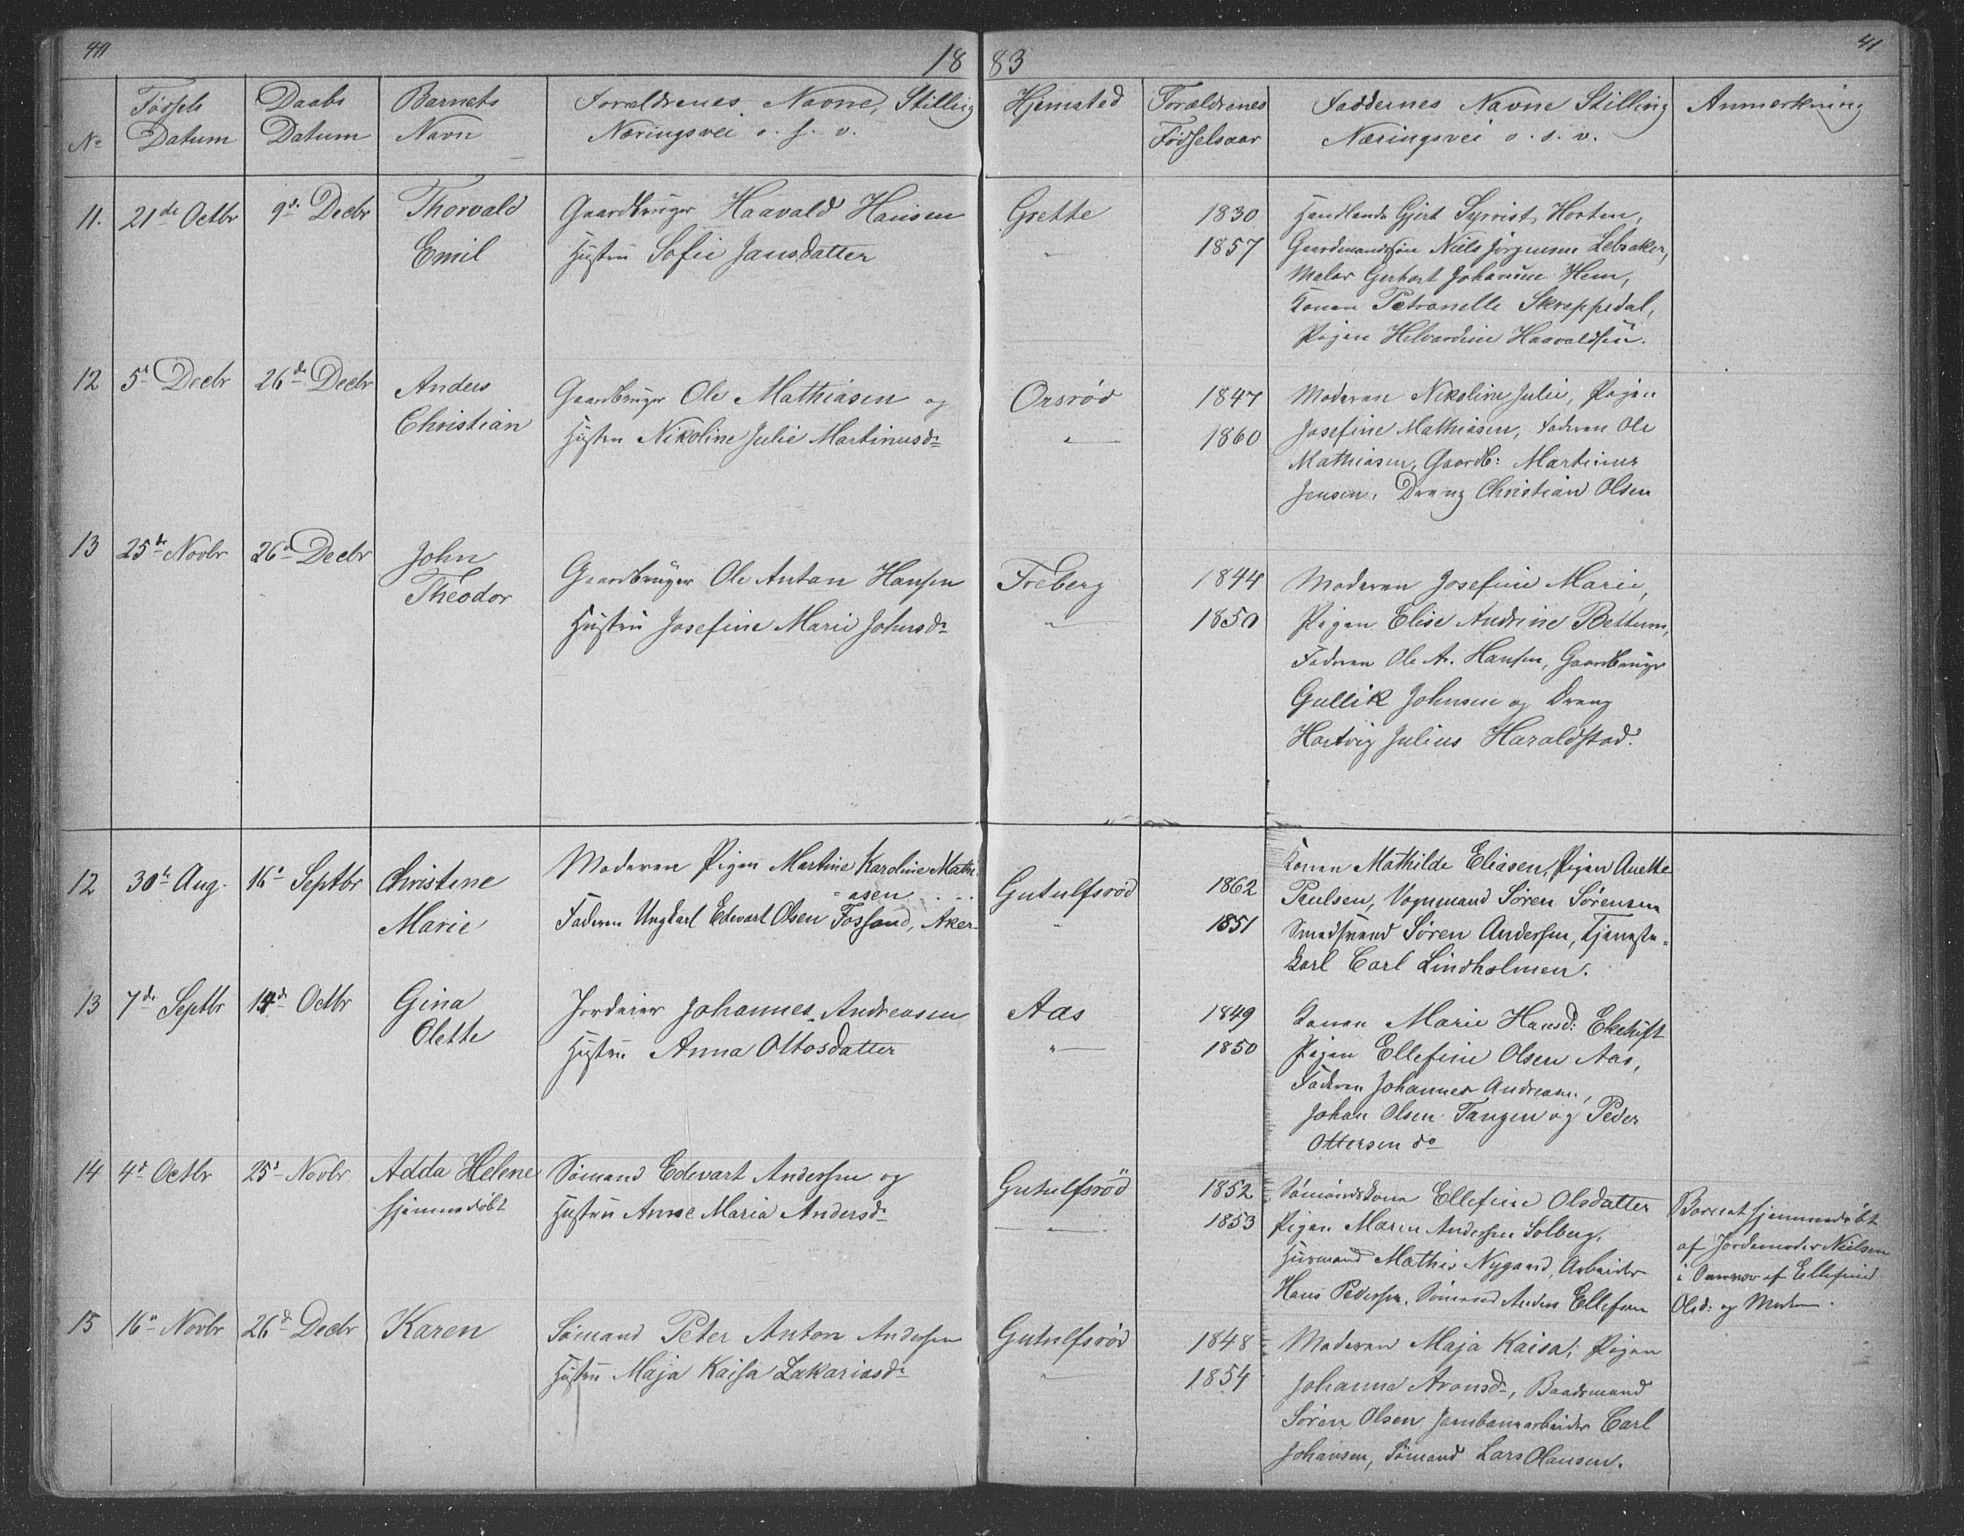 41
18 83
41
No
Fødsels Datum
Daabs Datum
Barnets Navn
Forældrenes Navne, Stilling
Næringsvei o. s. v.
Hjemsted
Forældrenes Fødselsaar
Faddernes Navne Stilling
Næringsvei o. s. v.
Anmerkning
11. 21de Octbr 9de Decbr Thorvald Emil
Gaardbruger Haavald Hansen
Hustru Sofie Jansdatter
Grette
1830
1857
Handlende Gjert Syrvist, Horten,
Gaardmandssøn Niels Jørgensen Lebsaker,
Maler Gerhart Johannes Hem,
Konen Petronelle Skreppedal,
Pigen Helvardine Haavaldsen.
12 5d Decbr 26de Decbr Anders Christian
Gaardbruger Ole Mathiasen og
Hustru Nikoline Julie Martinusdr
Orsrød
"
1847
1860
Moderen Nikoline Julie, Pigen
Josefine Mathiasen, Faderen Ole
Mathiasen, Gaardb: Martinus
Jensen, Dreng Christian Olsen
13 25de Novbr 26d Decbr John Theodor
Gaardbruger Ole Anton Hansen
Hustru Josefine Marie Johnsdr
Freberg
"
1844
1850
Moderen Josefine Marie,
Pigen Elise Andrine Bettum,
Faderen Ole A. Hansen, Gaardbruger
Gullik Johnsen og Dreng
Hartvig Julius Haraldstad.
12 30te Aug. 16d Septbr Christine Marie
Moderen Pigen Martine Karoline Mathi
=asen
Faderen Ungkarl Edevart Olsen Fossand, Aker
Gutulfsrød
"
1862
1851
Konen Mathilde Eliasen, Pigen Anette
Paulsen, Vognmand Søren Sørensen
Smedsvend Søren Andersen, Tjeneste=
karl Carl Lindholmen.
13 7de Septbr 14de Octbr Gina Olette
Jordeier Johannes Andreasen
Hustru Anna Ottosdatter
Aas
"
1849
1850
Konen Marie Hansd: Ekehift
Pigen Ellefine Olsen Aas,
Faderen Johannes Andreasen,
Johan Olsen Tangen og Peder
Ottersen do
14 4d Octbr 25d Novbr Adda Helene
hjemmedøbt
Sømand Edevart Andersen og
Hustru Anne Maria Andersdr
Gutulfsrød
"
1852
1853
Sømandskone Ellefine Olsdatter
Pigen Maren Andersen Solberg,
Husmand Mathis Nygaard, Arbeider
Hans Pedersen, Sømand Anders Ellefsen
Barnet hjemmedøbt
af Jordemoder Nielsen
i Overvær af Ellefine
Olsd: og Morten.
15 16d Novbr 26d Decbr Karen
Sømand Peter Anton Andersen
Hustru Maja Kaisa Zakariasdr
Gutulfsrød
"
1848
1854
Moderen Maja Kaisa, Pigen
Johanne Aronsdr, Baadsmand
Søren Olsen, Jernbanearbeider Carl
Johansen, Sømand Lars Hansen.